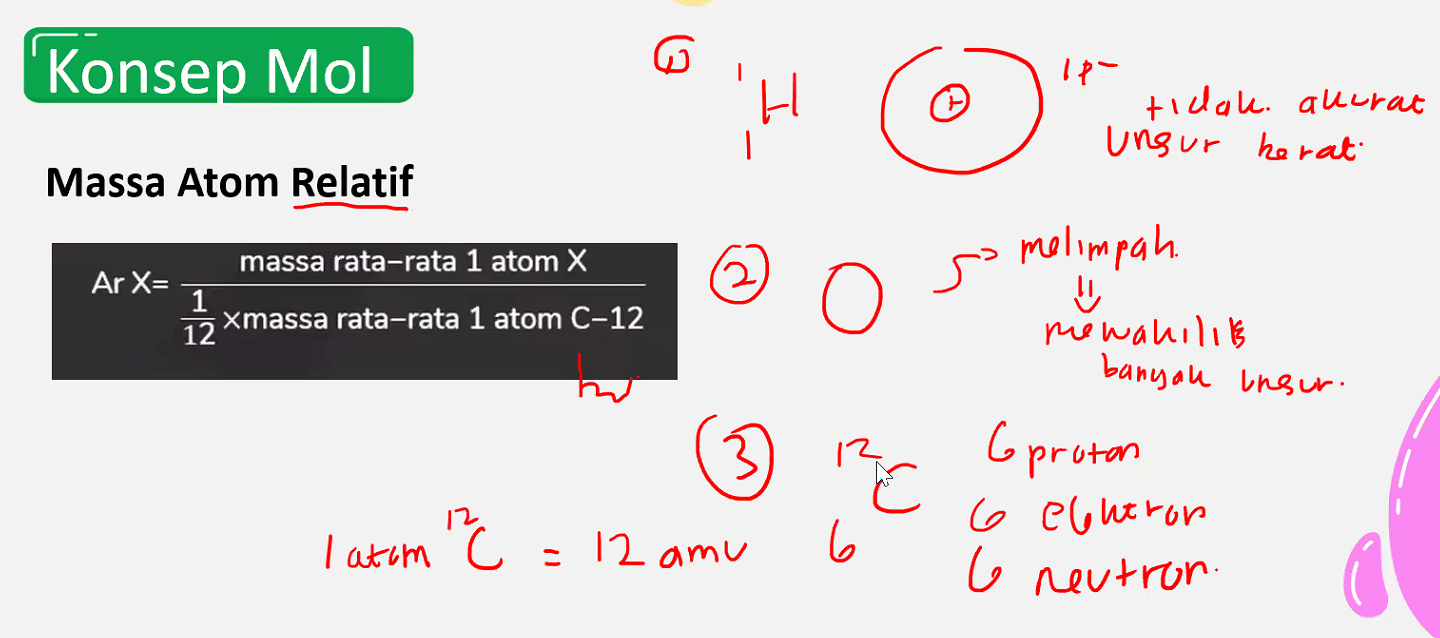 Konsep Mol
Massa Atom Relatif
Ar X=
massa rata-rata 1 atom X
1
12
×massa rata-rata 1 atom C-12
1
1
H
+
tidak akurat
unsur berat.
2
O
melimpah.
mewakili
banyak unsur.
3
12
C
6
6 proton
6 elektron
6 neutron.
1 atom 12C = 12 amu